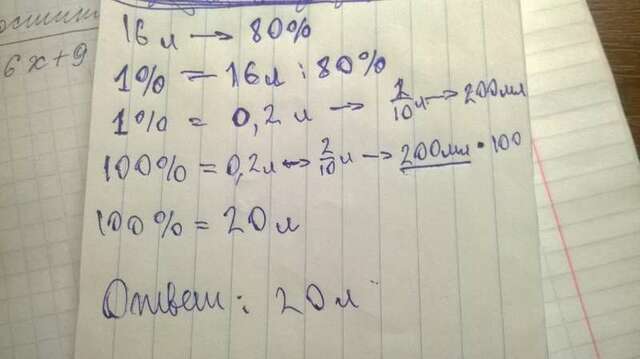 6x+9
16 л → 80%
1% = 16 л : 80%
1% = 0,2 л → 2/10 л → 200 мл
100% = 0,2 л → 2/10 л → 200 мл · 100
100% = 20 л
Ответ : 20 л